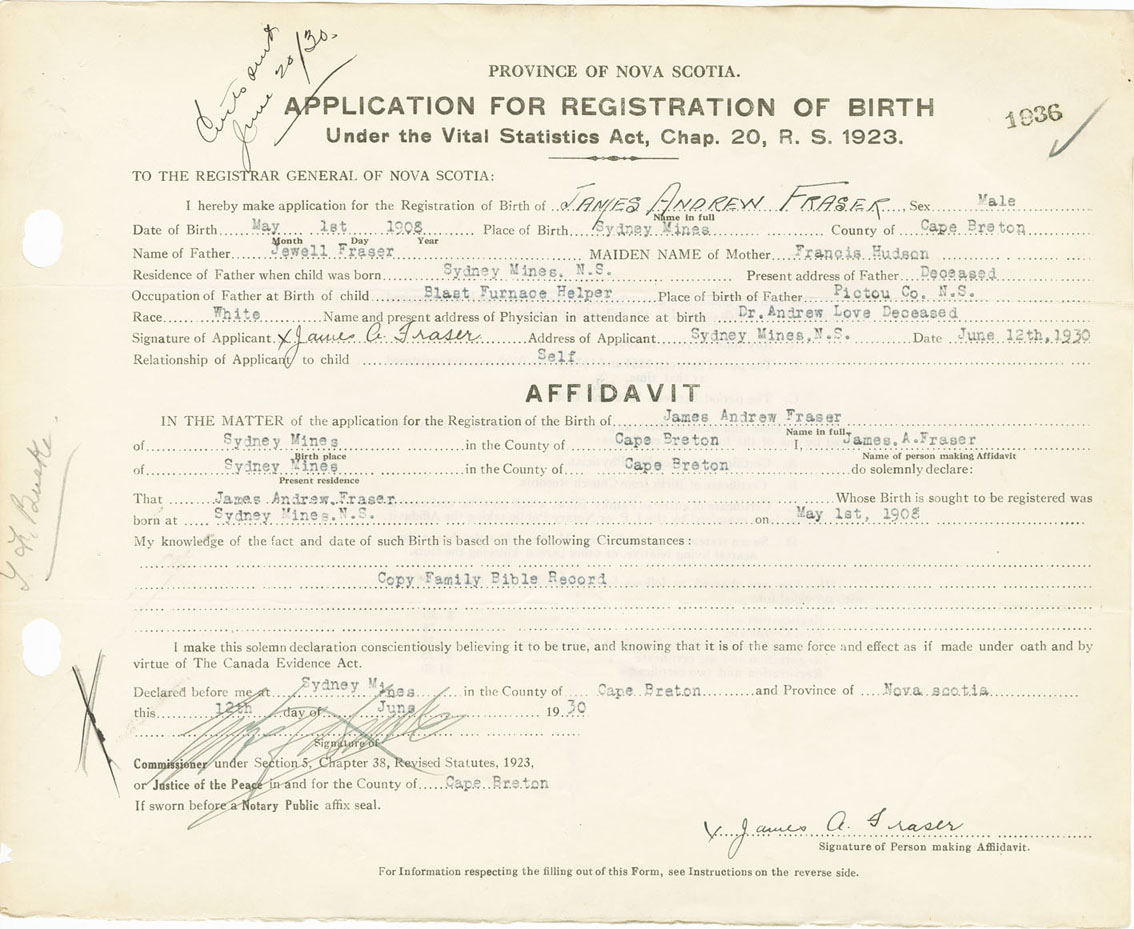 June 20/30.
PROVINCE OF NOVA SCOTIA.
APPLICATION FOR REGISTRATION OF BIRTH
1936
Under the Vital Statistics Act, Chap. 20, R. S. 1923.
TO THE REGISTRAR GENERAL OF NOVA SCOTIA:
I hereby make application for the Registration of Birth of JAMES ANDREW FRASER, Sex Male
Name in full
Date of Birth May 1st 1908 Place of Birth Sydney Mines County of Cape Breton
Month Day Year
Name of Father Jewell Fraser MAIDEN NAME of Mother Francis Hudson
Residence of Father when child was born Sydney Mines, N.S. Present address of Father Deceased
Occupation of Father at Birth of child Blast Furnace Helper Place of birth of Father Pictou Co. N.S.
Race White Name and present address of Physician in attendance at birth Dr. Andrew Love Deceased
Signature of Applicant X James A. Fraser Address of Applicant Sydney Mines, N.S. Date June 12th, 1930
Relationship of Applicant to child Self
AFFIDAVIT
IN THE MATTER of the application for the Registration of the Birth of James Andrew Fraser
Name in full
of Sydney Mines in the County of Cape Breton I, James. A. Fraser
Birth place Name of person making Affidavit
of Sydney Mines in the County of Cape Breton do solemnly declare:
Present residence
That James Andrew Fraser Whose Birth is sought to be registered was
born at Sydney Mines, N.S. on May 1st, 1908
My knowledge of the fact and date of such Birth is based on the following Circumstances:
Copy Family Bible Record
I make this solemn declaration conscientiously believing it to be true, and knowing that it is of the same force and effect as if made under oath and by
virtue of The Canada Evidence Act.
Declared before me at Sydney Mines in the County of Cape Breton and Province of Nova scotia
this 12th day of June 1930
Signature of
Commissioner under Section 5, Chapter 38, Revised Statutes, 1923,
or Justice of the Peace in and for the County of Cape Breton
If sworn before a Notary Public affix seal.
X James A. Fraser
Signature of Person making Affiidavit.
For Information respecting the filling out of this Form, see Instructions on the reverse side.